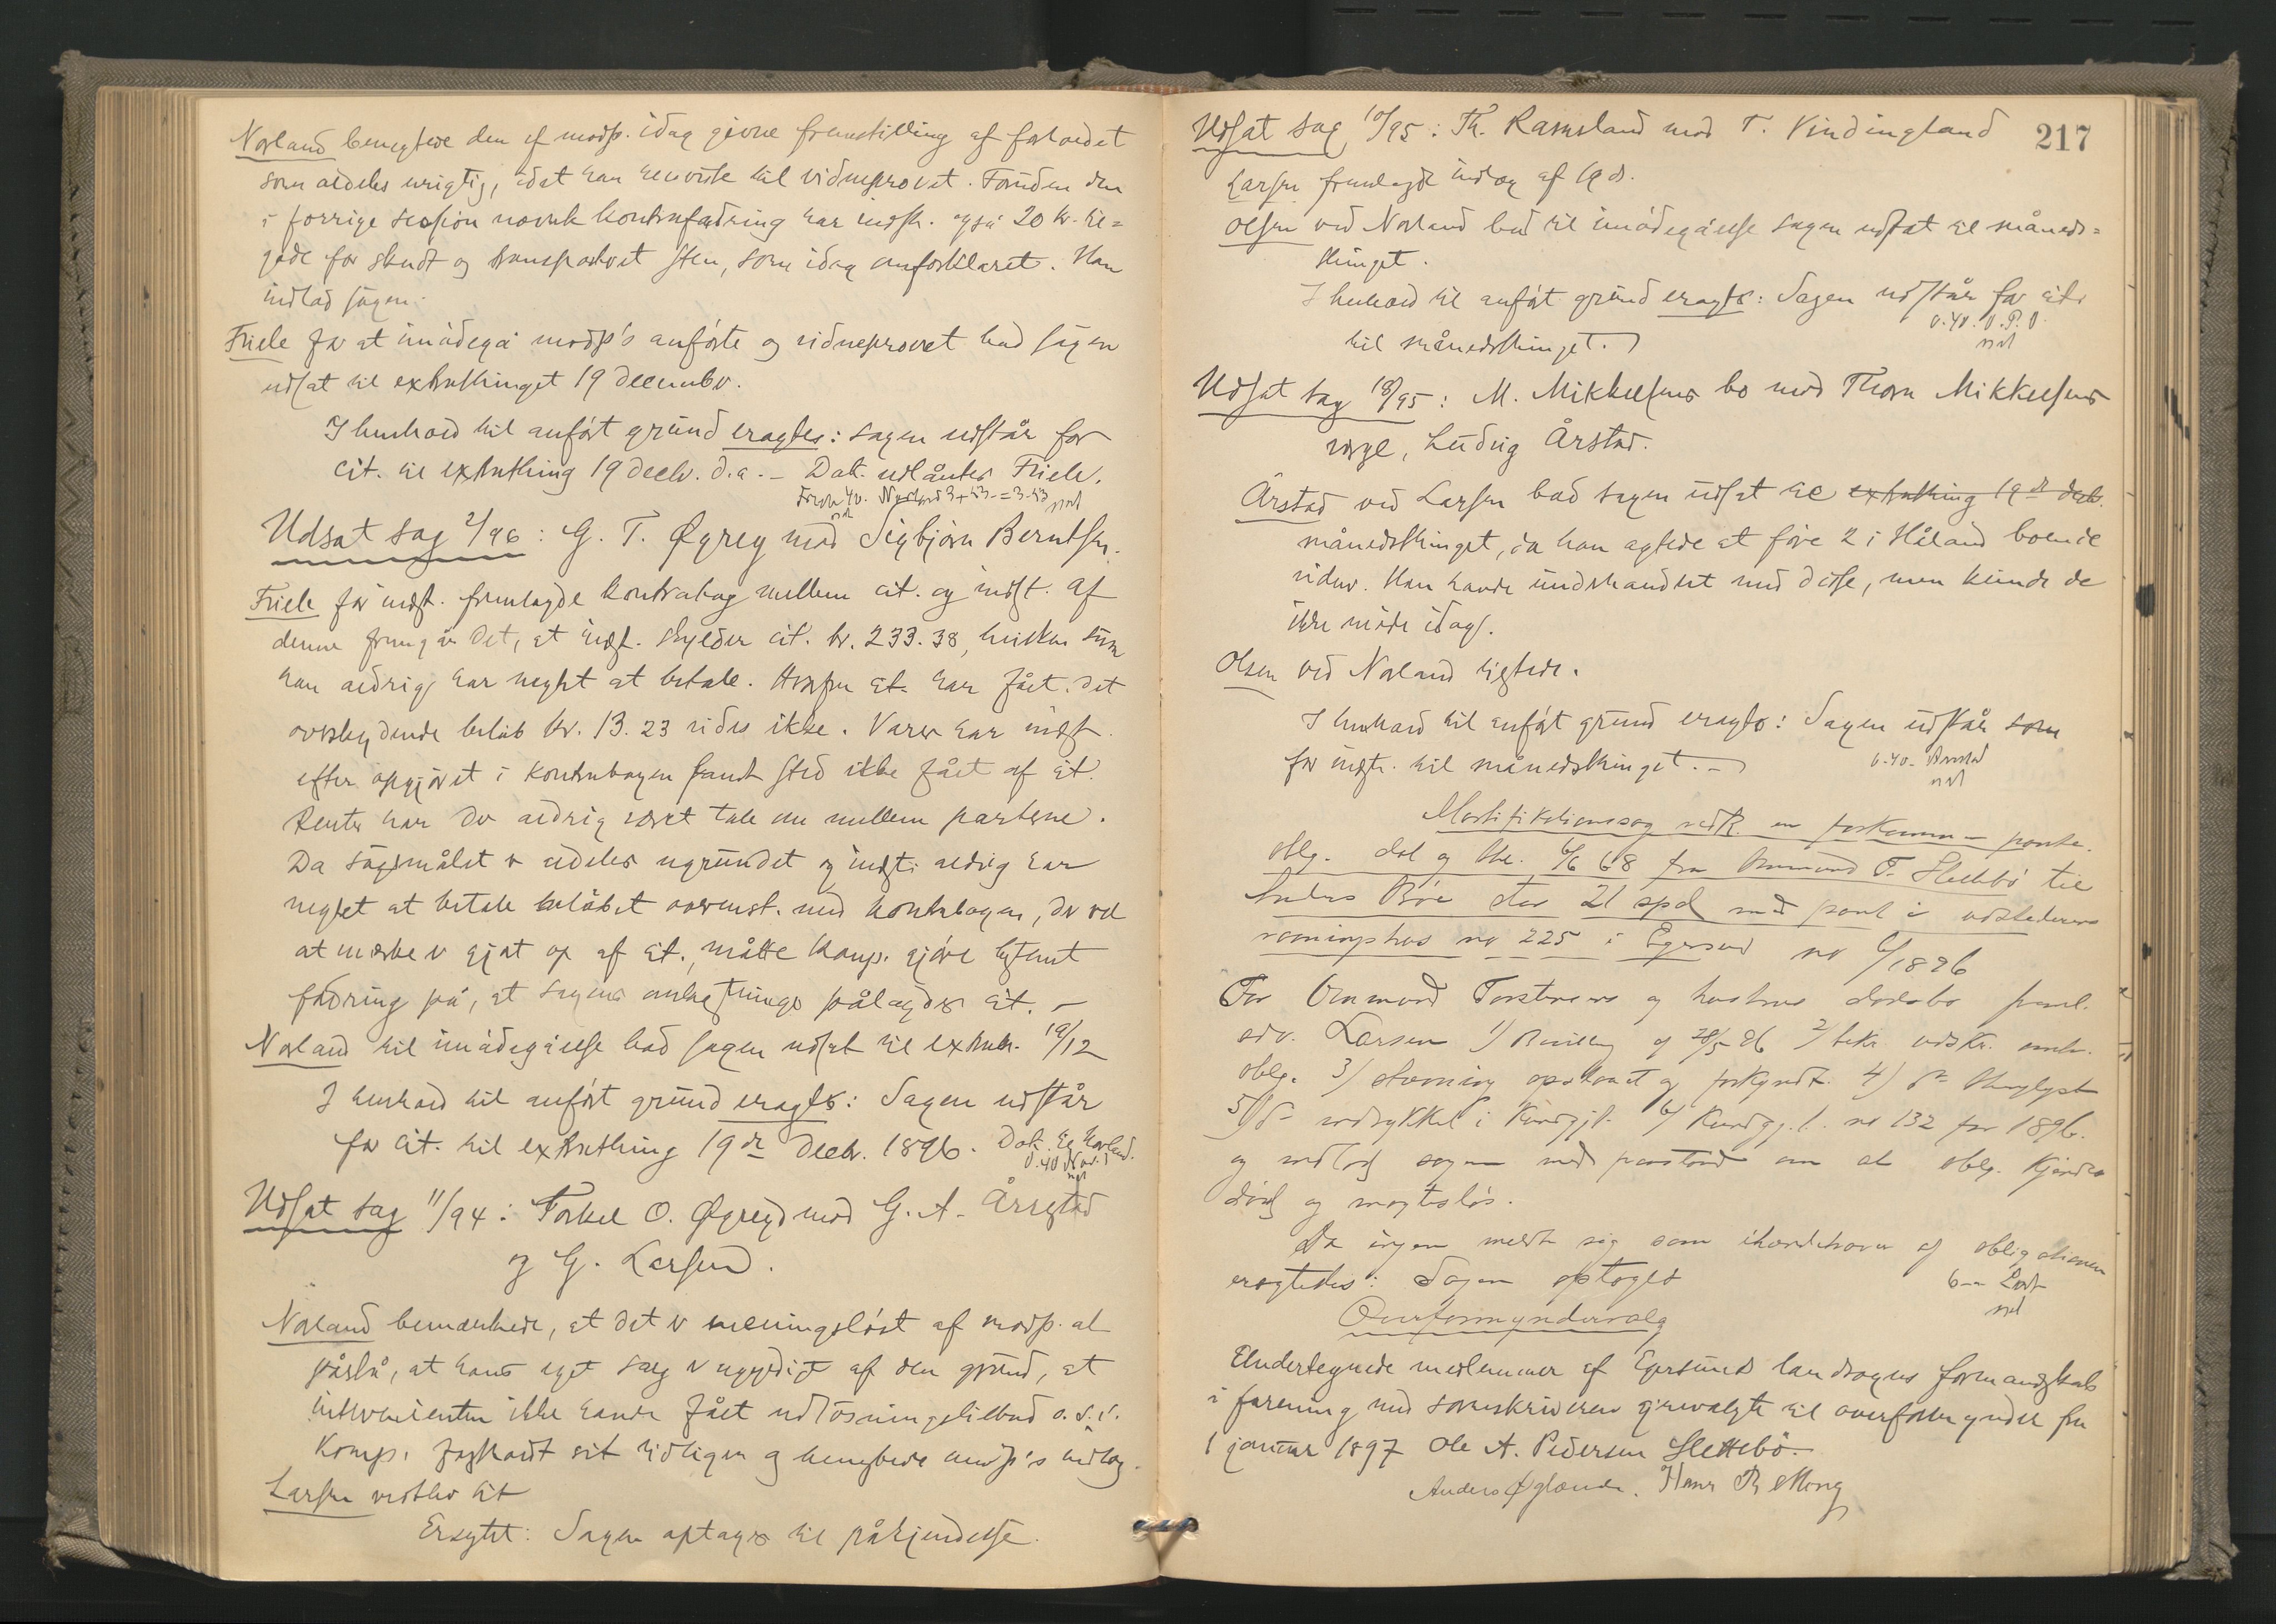 Norland benegtede den af modp. idag givne fremstilling af forholdet
som aldeles urigtig, idet han henviste til vidneprovet. Foruden den
i forrige session nævnte kontrafordring har indst. også 20 kr. til=
gode for skudt og transportert sten, som idag anforklaret. Han
indlod sagen.
Friele for at imødegå modp's anførte og vidneprovet bad sagen
udsat til extrathinget 19 december.
I henhold til anført grund eragtes: sagen udstår for
cit. til extrathing 19 decbr. d.a. – Dok. udlåntes Friele.
Udsat sag 2/96: G. T. Øgrey mod Sigbjørn Berntsen.
Friele for indst. fremlagde kontrabog mellem cit. og indst. Af
denne fremgår det, at indst. skylder cit. kr. 233.38, hvilken sum
han aldrig har negtet at betale. Hvorfra cit. har fået det
overskydende beløb kr. 13.23 vides ikke. Varer har indst.
efter opgjøret i kontrabogen fandt sted ikke fået af cit.
Renter har der aldrig været tale om mellem parterne.
Da søgsmålet er aldeles ugrundet og indst. aldrig har
negtet at betale beløbet overenst. med kontrabogen, der vel
at mærke er gjort op af cit., måtte komp. gjøre bestemt
fordring på, at sagens omkostninger pålagdes cit. –
Norland til imødegåelse bad sagen udsat til extrath. 19/12
I henhold til anført grund eragtes: Sagen udstår
for cit. til extrathing 19de decbr. 1896. Dok. til Norland.
0.40 Norl.
Udsat sag 11/94: Torkel O. Øgreyd mod G. A. Årrestad
og G. Larsen.
Norland bemærkede, at det er meningsløst af modp. at
påstå, at hans eget salg er ugyldigt af den grund, at
intervenienten ikke havde fået udløsningstilbud o.s.v.
Komp. fastholdt sit tidligere og benegtede modp's indlæg.
Larsen ved sit
Eragtet: Sagen optages til påkjendelse.
217
Udsat sag 10/95: Th. Ramsland mod T. Vindingland
Larsen fremlagde indlæg af 19 ds.
Olsen ved Norland bad til imødegåelse sagen udsat til måneds=
thinget.
I henhold til anført grund eragtes: Sagen udstår for cit.
til månedsthinget.
Udsat sag 18/95: M. Mikkelsens bo mod Thora Mikkelsens
værge, Ludvig Årstad.
Årstad ved Larsen bad sagen udsat til extrathing 19de decb.
månedsthinget, da han agtede at føre 2 i Håland boende
vidner. Han havde underhandlet med disse, men kunde de
ikke møde idag.
Olsen ved Norland vigtede.
I henhold til anført grund eragtes: Sagen udstår som
for indst. til månedsthinget. –
0.40
Mortifikationssag vedk. en forkommen pante-
oblg. dat og thl. 6/6 68 fra Ommund T. Slettebø til
Anders Bøe stor 21 spd med pant i udstederens
våningshus no 225 i Egersund no 6/1896
For Ommund Torstensens og hustrus dødsbo freml.
adv. Larsen 1) Bevilling af 28/5 96 2) bekr. udskr. omh.
oblg. 3) stævning opslaaet og forkyndt. 4) do thinglyst
5) do indrykket i Kundgjt. 6) Kundgj.t. no 132 for 1896.
og indlod sagen med paastand om at oblg. kjendes
død og magtesløs.
Da ingen meldte sig som ihændehaver af obligationen
eragtedes: Sagen optoges
Overformyndervalg
Undertegnede medlemmer af Egersunds landsogns formandskab
i forening med sorenskriveren gjenvalgte til overformynder fra
1 januar 1897 Ole A. Pedersen Slettebø.
Anders Øglænde. Hans Th Mong